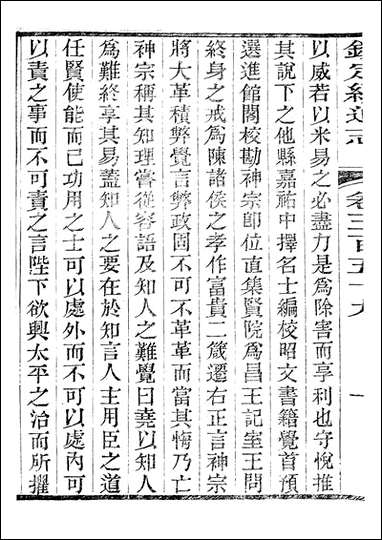 欽定續通志 卷三百五十九 一
以威若以米易之必盡力是爲除害而享利也守悅推
其說下之他縣嘉祐中擇名士編校昭文書籍覺首預
選進館閣校勘神宗卽位直集賢院爲昌王記室王問
終身之戒爲陳諸侯之孝作富貴二箴遷右正言神宗
將大革積弊覺言弊政固不可不革革而當其悔乃亡
神宗稱其知理嘗從容語及知人之難覺曰堯以知人
爲難終享其易蓋知人之要在於知言人主用臣之道
任賢使能而已功用之士可以處外而不可以處內可
以責之事而不可責之言陛下欲興太平之治而所擢